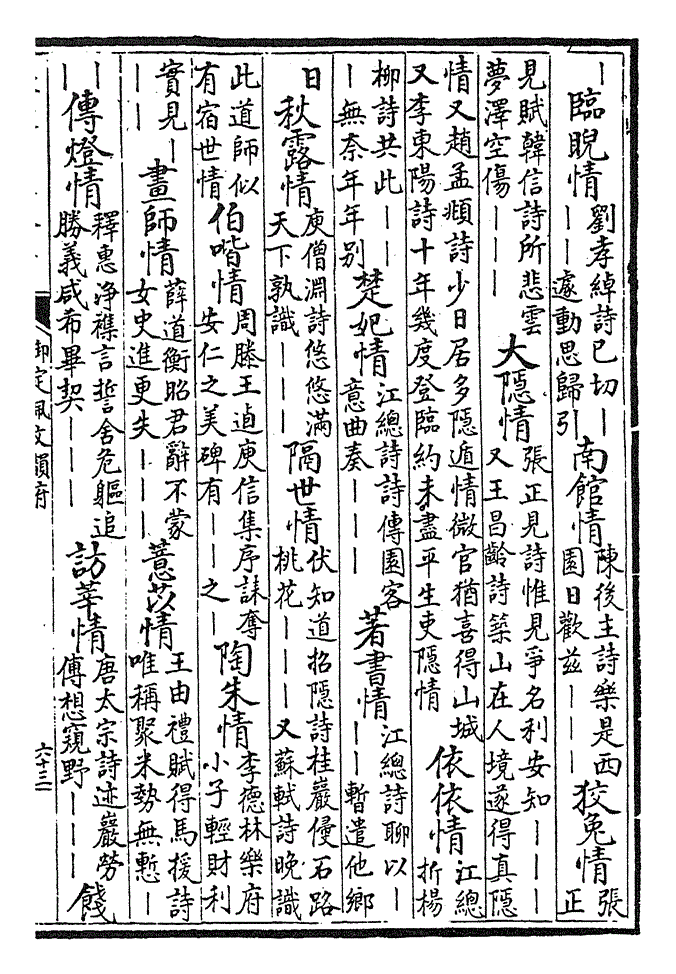 ｜臨睨情劉孝綽詩已切｜｜｜遽動思歸引南館情陳後主詩樂是西園日歡茲｜｜｜狡兔情張正
見賦韓信詩所悲雲夢澤空傷｜｜｜大隱情張正見詩惟見爭名利安知｜｜｜又王昌齡詩築山在人境遂得真隱
情又趙孟頫詩少日居多隱遁情微官猶喜得山城又李東陽詩十年幾度登臨約未盡平生更隱情依依情江總折楊
柳詩共此｜｜｜無奈年年別楚妃情江總詩詩傳園客意曲奏｜｜｜著書情江總詩聊以｜｜｜暫遣他鄉
日秋露情庾僧淵詩悠悠滿天下孰識｜｜｜隔世情伏知道招隱詩桂巖僈石路桃花｜｜｜又蘇軾詩晚識
此道師似有宿世情伯喈情周滕王逌庾信集序誄奪安仁之美碑有｜｜之｜陶朱情李德林樂府小子輕財利
實見｜｜｜畫師情薛道衡昭君辭不蒙女史進更失｜｜｜薏苡情王由禮賦得馬援詩唯稱聚米勢無慙｜
｜｜傳燈情釋惠淨襍言誓舍危軀追勝義咸希畢契｜｜｜訪莘情唐太宗詩迹巖勞傅想窺野｜｜｜餞
御定佩文韻府
六十三